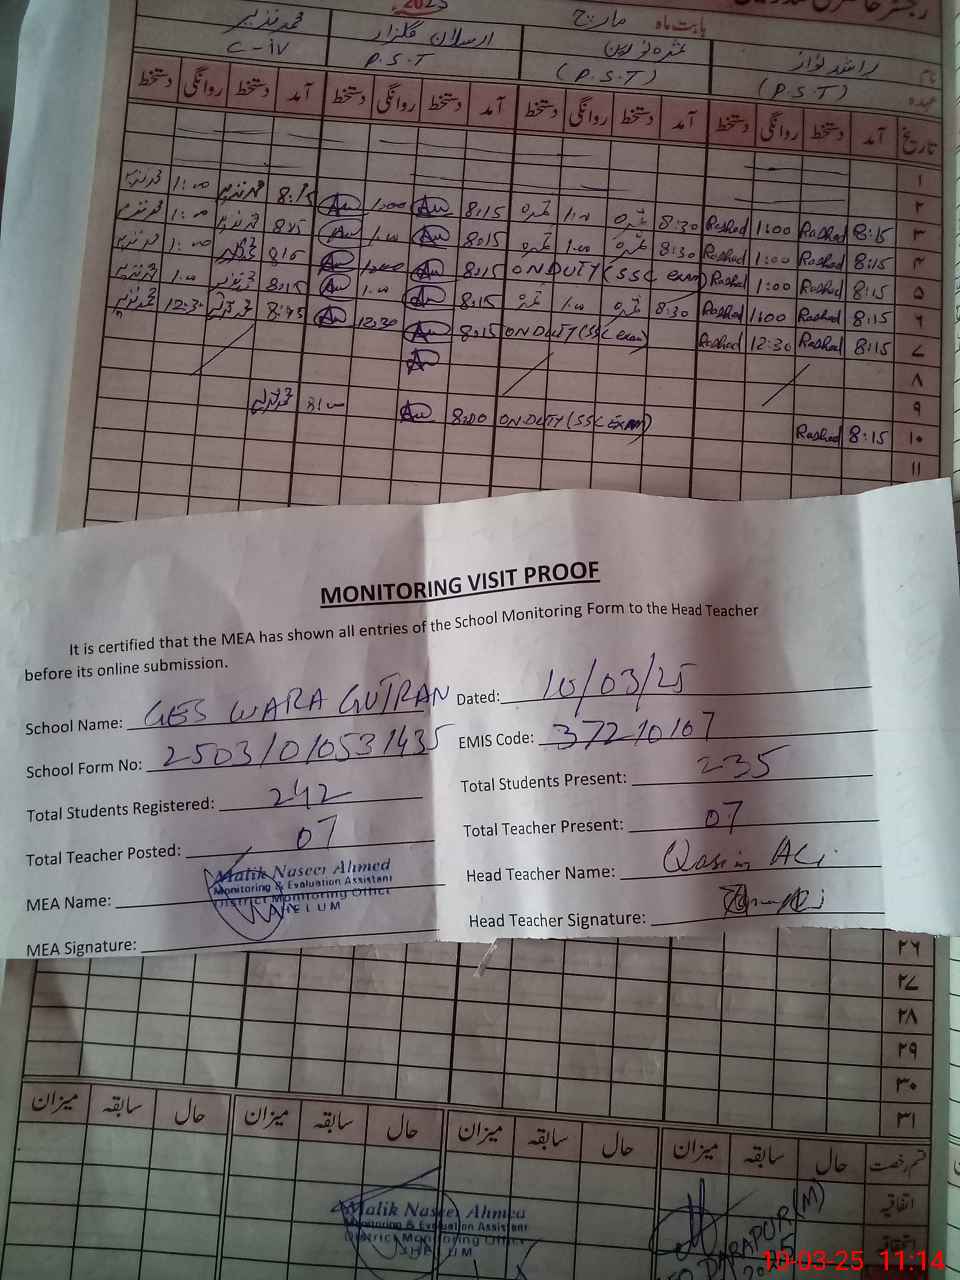 رجسٹر حاضری
2025
بابت ماہ مارچ
نام راشد نواز ارسلان گلزار محمد نذیر
عہدہ (P.S.T) (P.S.T) P.S.T C-IV
تاریخ آمد دستخط روانگی دستخط آمد دستخط روانگی دستخط آمد دستخط روانگی دستخط آمد دستخط روانگی دستخط
۱
۲
۳ 8:15 Rashed 1:00 Rashed 8:30 1:00 8:15 1:00 8:15 محمد نذیر 1:00 محمد نذیر
۴ 8:15 Rashed 1:00 Rashed 8:30 1:00 8:15 1:00 محمد نذیر 1:00 محمد نذیر
۵ 8:15 Rashed 1:00 Rashed ON DUTY (SSC exam) 8:15 1:00 8:15 1:00 محمد نذیر
۶ 8:15 Rashed 1:00 Rashed 8:30 1:00 8:15 1:00 8:15 محمد نذیر 1:00 محمد نذیر
۷ 8:15 Rashed 12:30 Rashed ON DUTY (SSC exam) 8:15 12:30 8:45 محمد نذیر 12:30 محمد نذیر
۸
۹
۱۰ 8:15 Rashed ON DUTY (SSC EXAM) 8:00 8:00 محمد نذیر
۱۱
MONITORING VISIT PROOF
It is certified that the MEA has shown all entries of the School Monitoring Form to the Head Teacher
before its online submission.
School Name: GES WARA GUTRAN Dated: 10/03/25
School Form No: 2503/0/0531435 EMIS Code: 37210107
Total Students Registered: 242 Total Students Present: 235
Total Teacher Posted: 07 Total Teacher Present: 07
MEA Name: Malik Naseer Ahmed Head Teacher Name: Qasim Ali
Monitoring & Evaluation Assistant
District Monitoring Office
JHELUM
MEA Signature: Head Teacher Signature:
۲۶
۲۷
۲۸
۲۹
۳۰
۳۱
قسم رخصت حال سابقہ میزان حال سابقہ میزان حال سابقہ میزان حال سابقہ میزان
اتفاقیہ
Malik Naseer Ahmed
Monitoring & Evaluation Assistant
District Monitoring Office
JHELUM
DARAPUR (M)
10-03-25 11:14